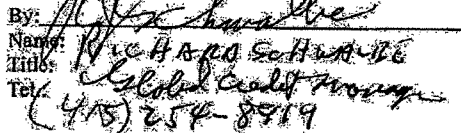 By:
Name: RICHARD SCHWALBE
Title: Global Credit Manager
Tel.: (415) 254-8919